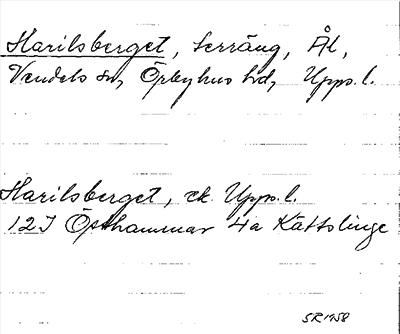 Harilsberget, terräng, Ål,
Vendels sn, Örbyhus hd, Upps. l.
Harilsberget, ek. Upps. l.
12I Östhammar 4a Kättslinge
SR 1958